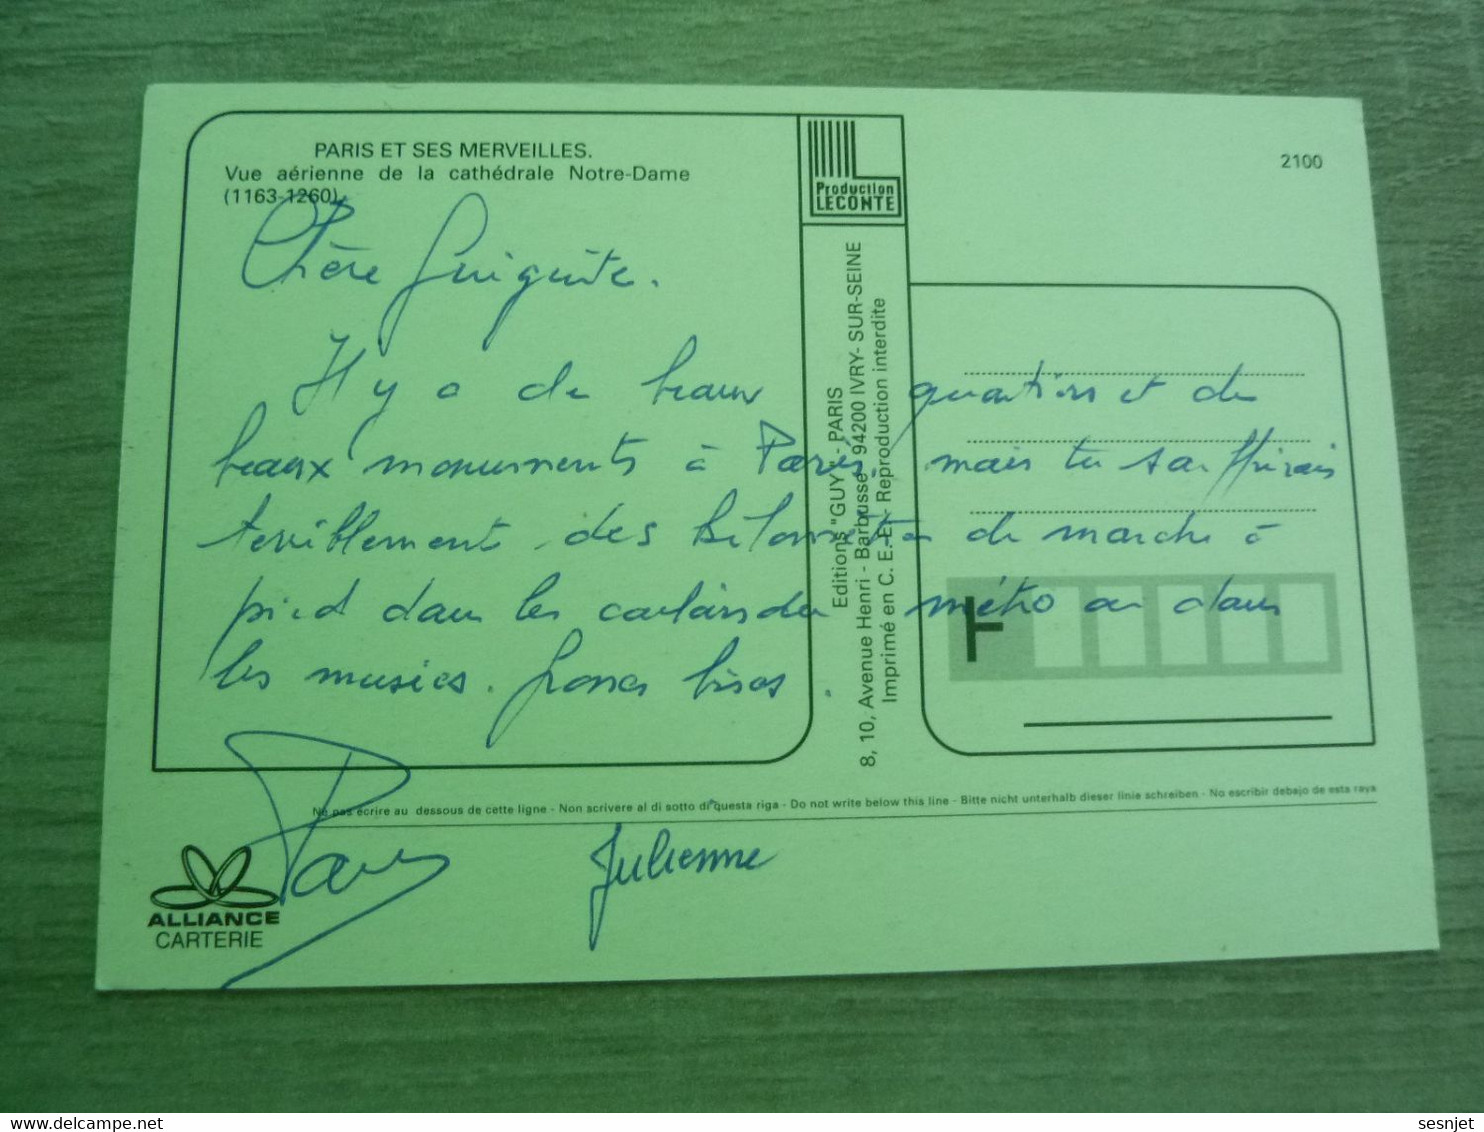 PARIS ET SES MERVEILLES.
Vue aérienne de la cathédrale Notre-Dame
(1163-1260)
Production
LECONTE
2100
Chère Guiguite.
Il y a de beaux quartiers et de
beaux monuments à Paris, mais tu souffrirais
terriblement des kilomètres de marche à
pied dans les couloirs du métro ou dans
les musées. Grosses bises.
Julienne
Editions "GUY" - PARIS
8, 10, Avenue Henri - Barbusse 94200 IVRY- SUR-SEINE
Imprimé en C. E. E. - Reproduction interdite
Ne pas écrire au dessous de cette ligne - Non scrivere al di sotto di questa riga - Do not write below this line - Bitte nicht unterhalb dieser linie schreiben - No escribir debajo de esta raya
ALLIANCE
CARTERIE
sesnjet
delcampe.net